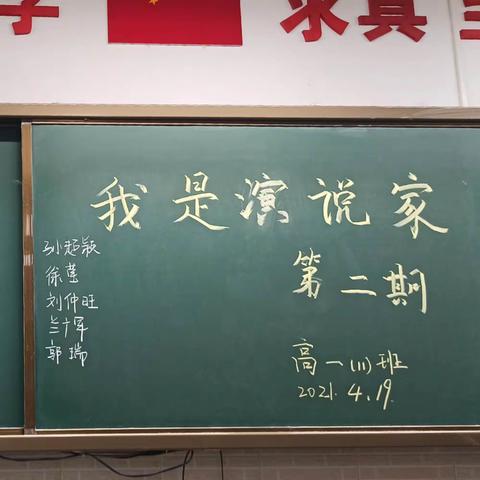 求真
我是演说家
第二期
孙超颖
徐莹
刘仲旺
兰军
郭瑞
高一(11)班
2021.4.19.